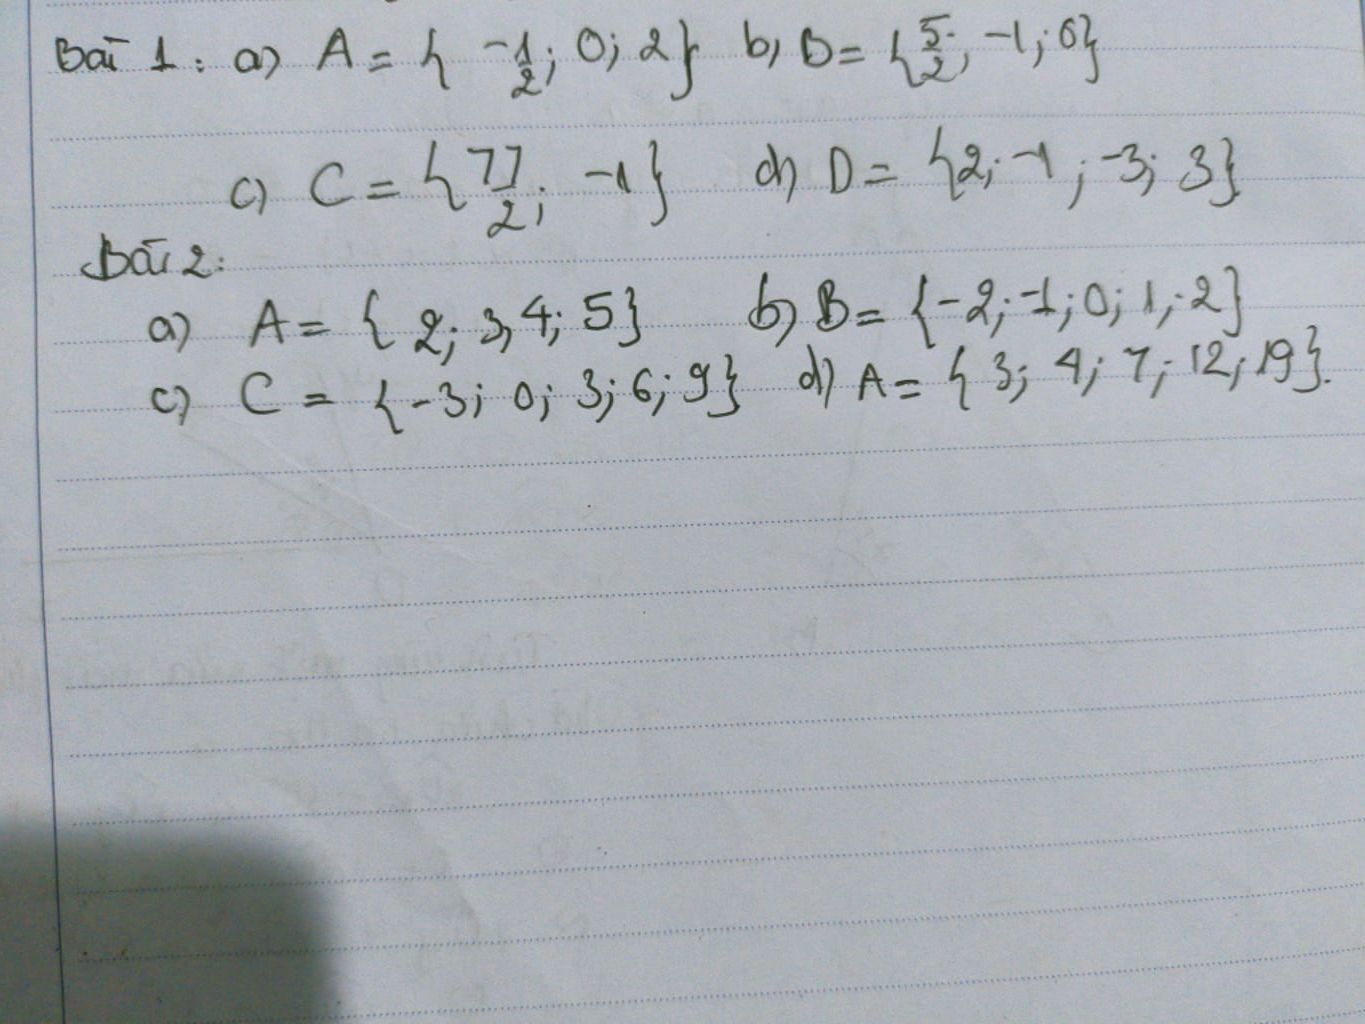 Bài 1: a) A = { -1/2; 0; 2} b) B = {5/2; -1; 6}
c) C = {77/2; -1} d) D = {2; -1; -3; 3}
Bài 2:
a) A = { 2; 3, 4; 5} b) B = {-2; -1; 0; 1; 2}
c) C = {-3; 0; 3; 6; 9} d) A = { 3; 4; 7; 12; 19}.